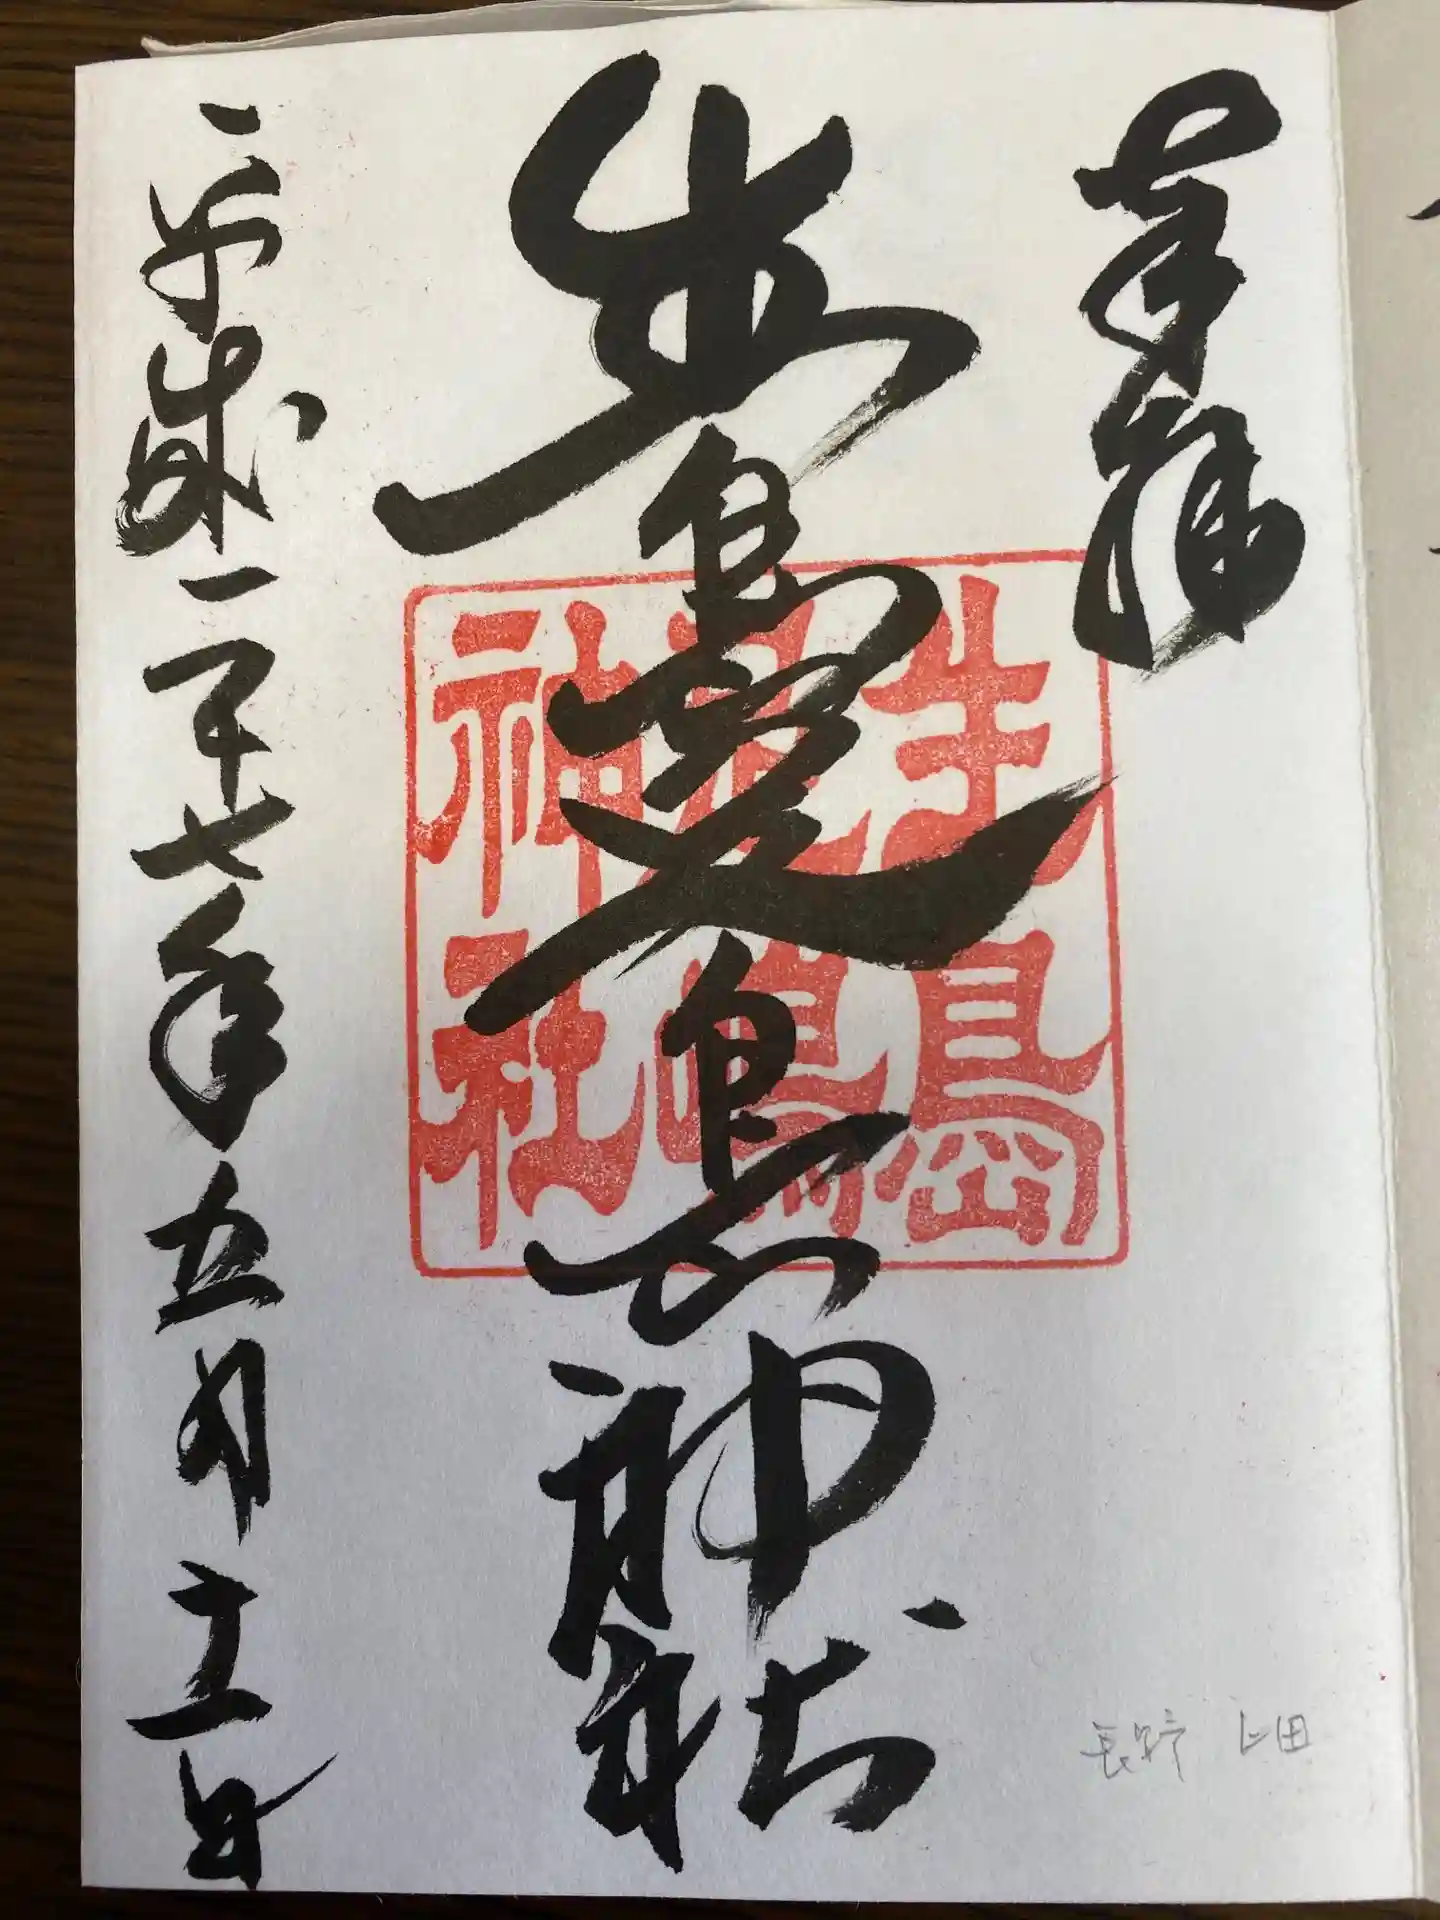 奉拝
生島足島神社
生島
足嶋
神社
平成二十七年五月十一日
長野 上田